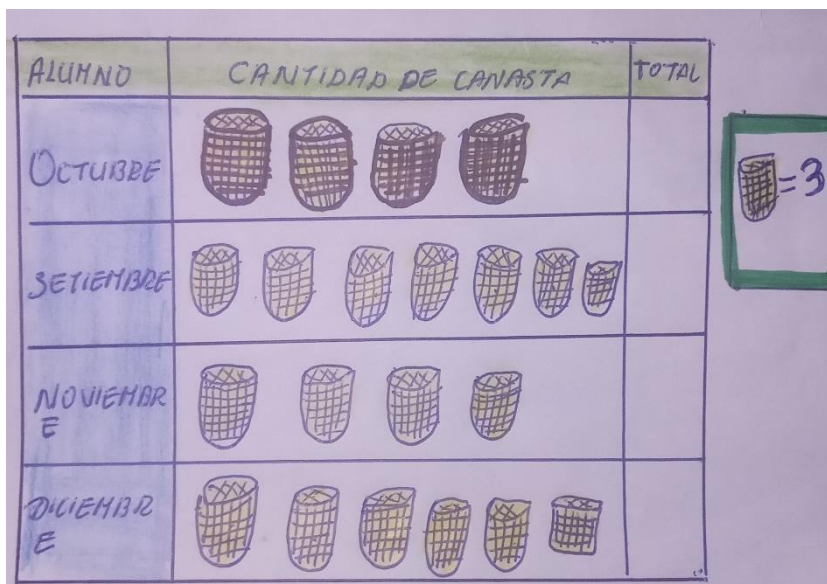 ALUMNO CANTIDAD DE CANASTA TOTAL
OCTUBRE
=3
SETIEMBRE
NOVIEMBR
E
DICIEMBR
E